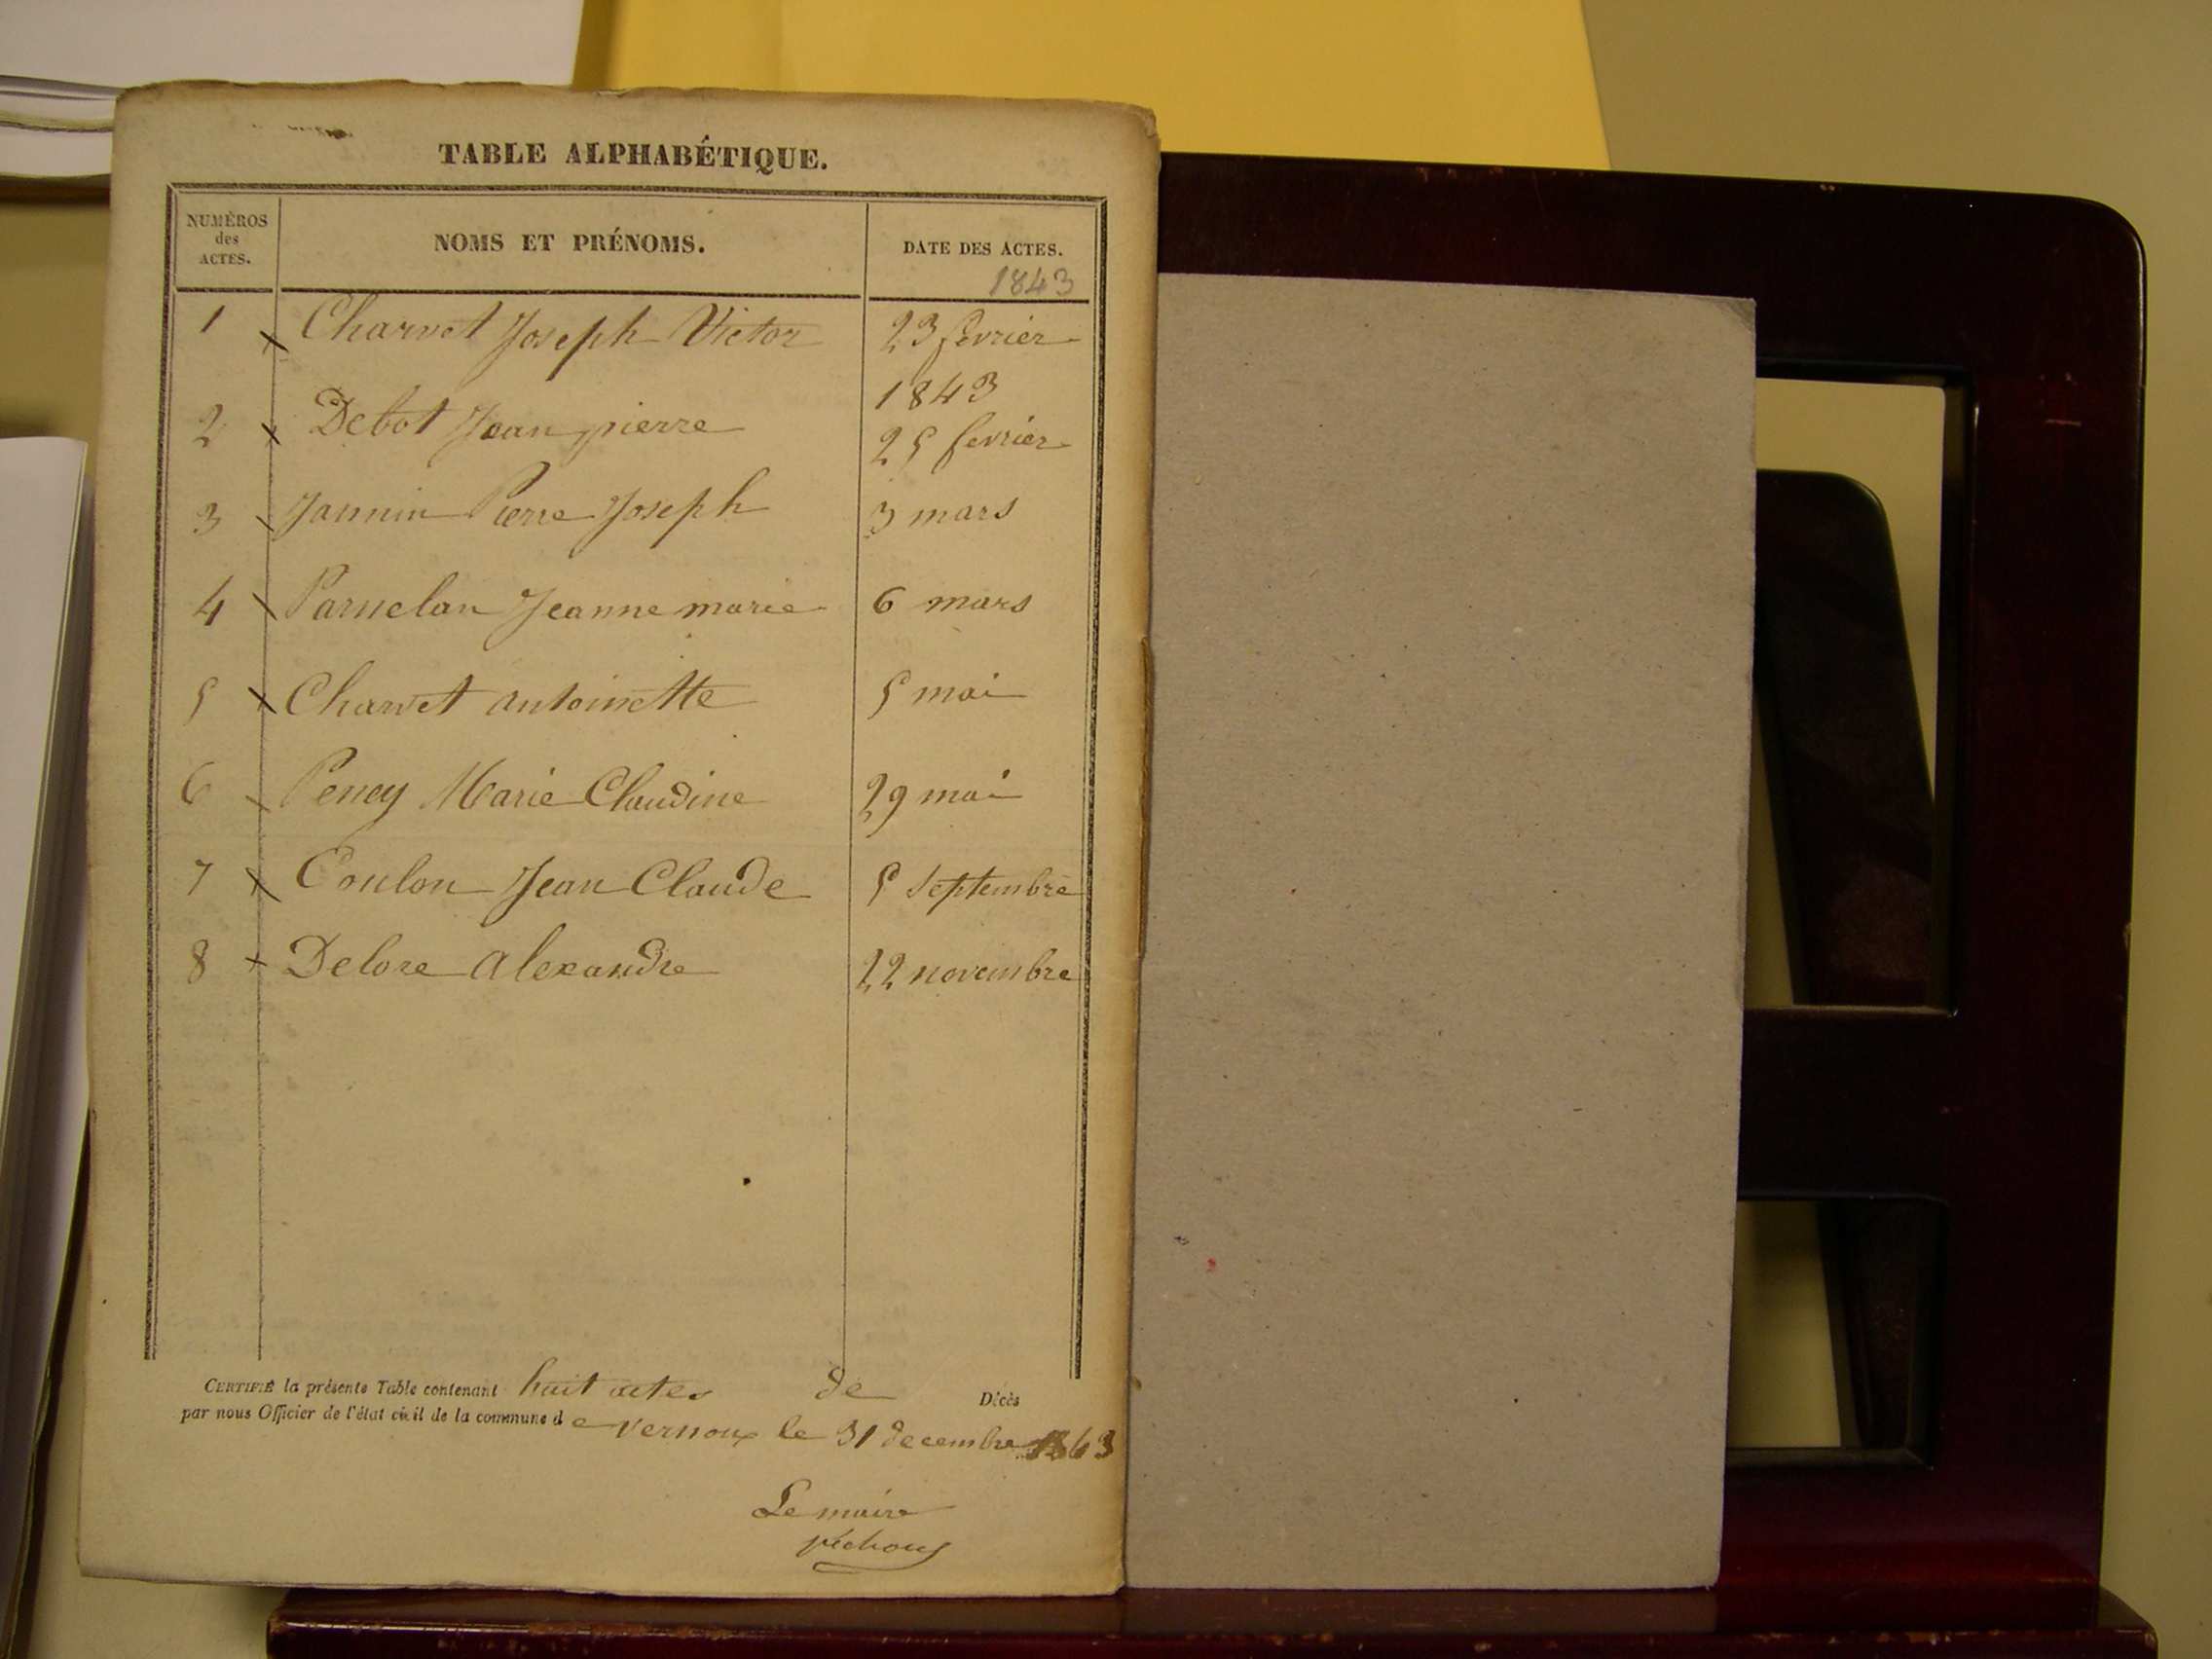 TABLE ALPHABÉTIQUE.
NUMÉROS des ACTES. NOMS ET PRÉNOMS. DATE DES ACTES.
1843
1 Charvet Joseph Victor 23 fevrier
1843
2 Debot Jean pierre 25 fevrier
3 Jannin Pierre Joseph 3 mars
4 Parnelan Jeanne marie 6 mars
5 Charvet antoinette 5 mai
6 Pency Marie Claudine 29 mai
7 Coulon Jean Claude 5 septembre
8 Delore alexandre 22 novembre
CERTIFIÉ la présente Table contenant huit actes de Décès
par nous Officier de l'état civil de la commune de vernoux le 31 decembre 1863
Le maire